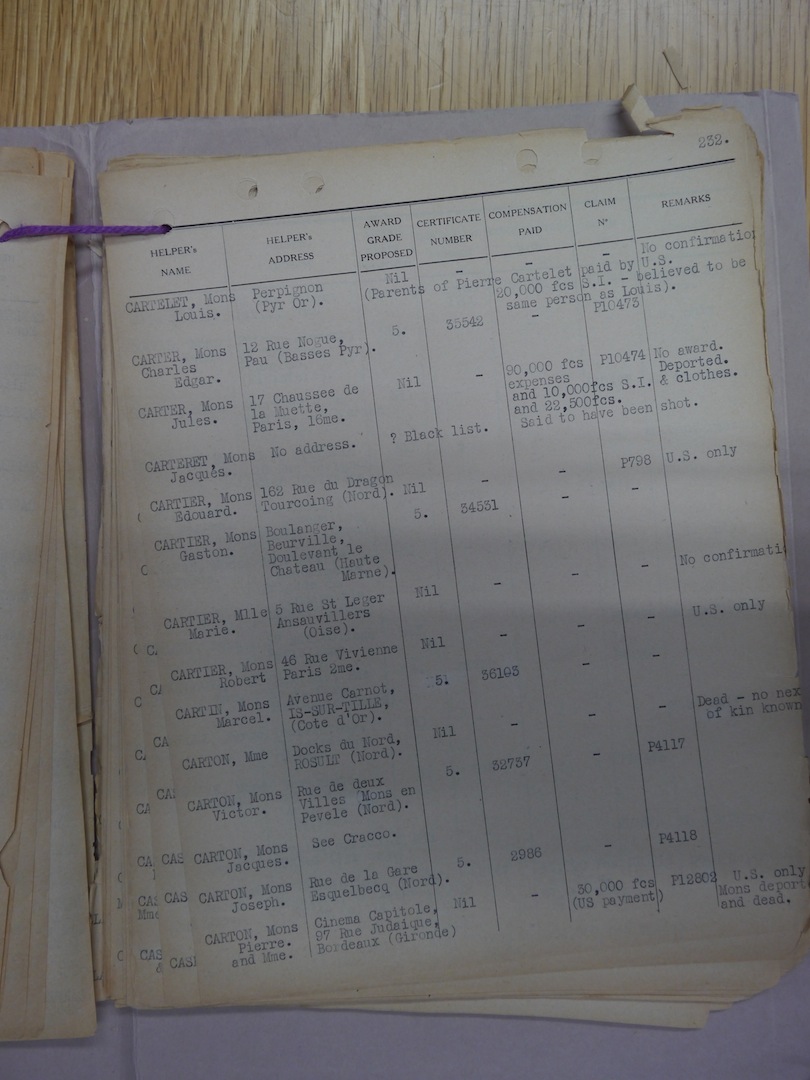 232.
HELPER's NAME HELPER's ADDRESS AWARD GRADE PROPOSED CERTIFICATE NUMBER COMPENSATION PAID CLAIM Nº REMARKS
CARTELET, Mons Perpignon Nil - - - No confirmation
Louis. (Pyr Or). (Parents of Pierre Cartelet paid by U.S.
20,000 fcs S.I. - believed to be
same person as Louis).
CARTER, Mons 12 Rue Nogue, 5. 35542 - P10473
Charles Pau (Basses Pyr).
Edgar.
CARTER, Mons 17 Chaussee de Nil - 90,000 fcs P10474 No award.
Jules. la Muette, expenses Deported.
Paris, 16me. and 10,000fcs S.I. & clothes.
and 22,500fcs.
CARTERET, Mons No address. ? Black list. Said to have been shot.
Jacques.
CARTIER, Mons 162 Rue du Dragon Nil - - P798 U.S. only
Edouard. Tourcoing (Nord).
CARTIER, Mons Boulanger, 5. 34531 - -
Gaston. Beurville,
Doulevant le
Chateau (Haute
Marne).
CARTIER, Mlle 5 Rue St Leger Nil - - - No confirmati
Marie. Ansauvillers
(Oise).
CARTIER, Mons 46 Rue Vivienne Nil - - - U.S. only
Robert Paris 2me.
CARTIN, Mons Avenue Carnot, 5. 36103 - -
Marcel. IS-SUR-TILLE,
(Cote d'Or).
CARTON, Mme Docks du Nord, Nil - - - Dead - no nex
ROSULT (Nord). of kin known
CARTON, Mons Rue de deux 5. 32757 - P4117
Victor. Villes Mons en
Pevele (Nord).
CARTON, Mons See Cracco.
Jacques.
CARTON, Mons Rue de la Gare 5. 2986 - P4118
Joseph. Esquelbecq (Nord).
CARTON, Mons Cinema Capitole, Nil - 30,000 fcs P12802 U.S. only
Pierre. 97 Rue Judaique, (US payment) Mons deport
and Mme. Bordeaux (Gironde) and dead.